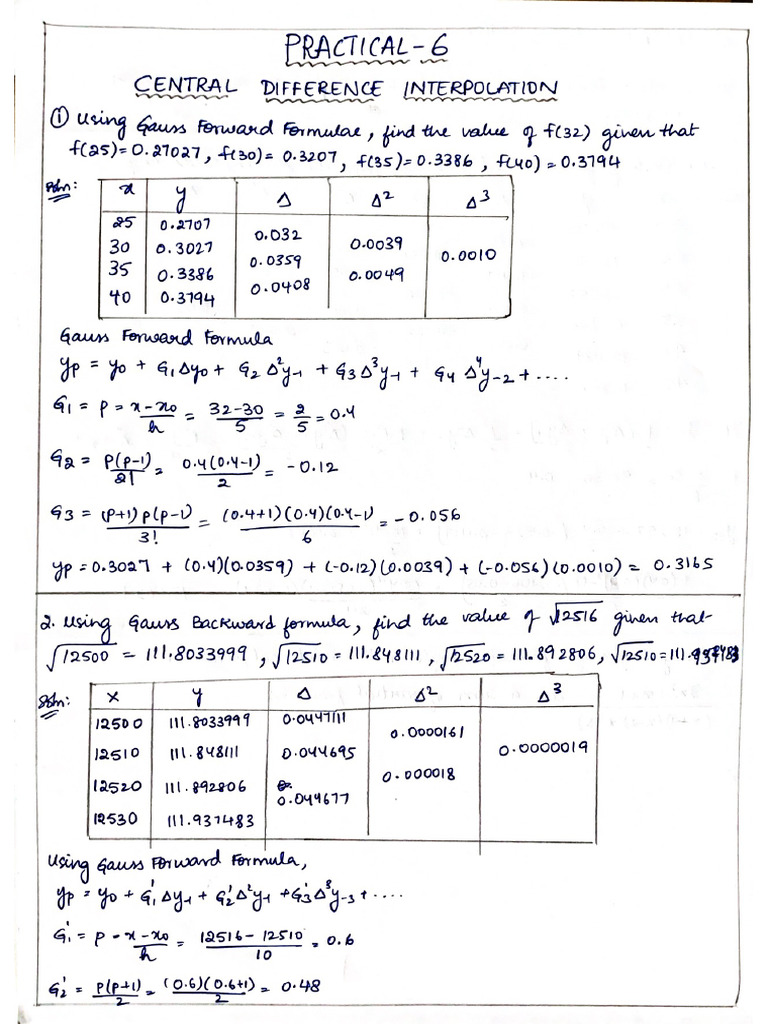 PRACTICAL-6
CENTRAL DIFFERENCE INTERPOLATION
① Using Gauss Forward Formulae, find the value of f(32) given that
f(25)=0.27027, f(30)=0.3207, f(35)=0.3386, f(40)=0.3794
Soln:
x y Δ Δ² Δ³
25 0.2707
0.032
30 0.3027 0.0039
0.0359 0.0010
35 0.3386 0.0049
0.0408
40 0.3794
Gauss Forward Formula
yp = y0 + G1Δy0 + G2 Δ²y-1 + G3Δ³y-1 + G4 Δ⁴y-2 + ....
G1 = p = x-x0/h = 32-30/5 = 2/5 = 0.4
G2 = p(p-1)/2! = 0.4(0.4-1)/2 = -0.12
G3 = (p+1)p(p-1)/3! = (0.4+1)(0.4)(0.4-1)/6 = -0.056
yp = 0.3027 + (0.4)(0.0359) + (-0.12)(0.0039) + (-0.056)(0.0010) = 0.3165
2. Using Gauss Backward formula, find the value of √12516 given that
√12500 = 111.8033999, √12510 = 111.848111, √12520 = 111.892806, √12510 = 111.937483
Soln:
x y Δ Δ² Δ³
12500 111.8033999 0.0447111
0.0000161
12510 111.848111 0.044695 0.0000019
0.000018
12520 111.892806
0.044677
12530 111.937483
Using Gauss Forward Formula,
yp = y0 + G1'Δy-1 + G2'Δ²y-1 + G3'Δ³y-3 + ....
G1' = p - x-x0/h = 12516-12510/10 = 0.6
G2' = p(p+1)/2 = (0.6)(0.6+1)/2 = 0.48